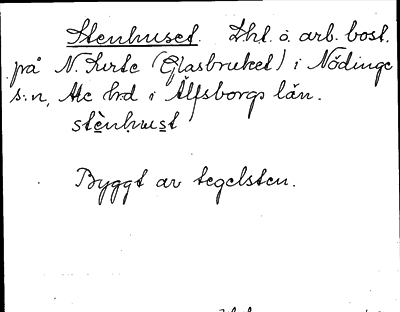 Stenhuset. Lht. å arb. bost.
på N. Surte (Glasbruket) i Nödinge
s:n, Ale hd i Älfsborgs län.
stènhust
Byggt av tegelsten.